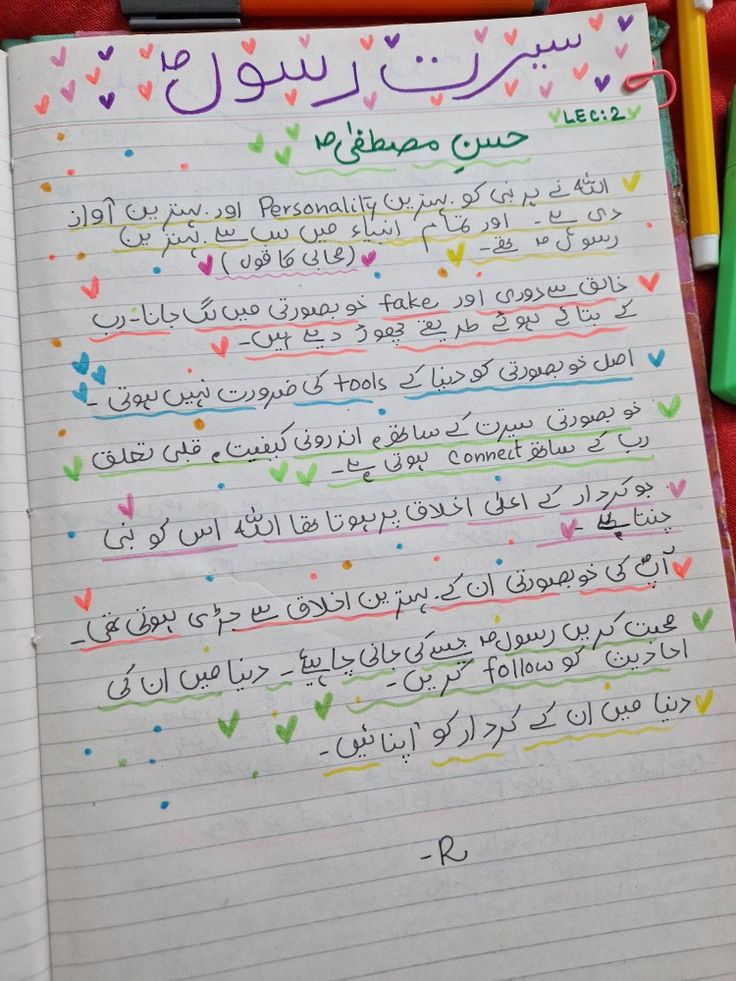 سیرت رسول ؐ
LEC:2
حسنِ مصطفیٰ ؐ
اللہ نے ہر نبی کو بہترین Personality اور بہترین آواز
دی ہے۔ اور تمام انبیاء میں سب سے بہترین
رسول ؐ تھے۔ (صحابی کا قول)
خالق سے دوری اور fake خوبصورتی میں لگ جانا۔ رب
کے بتائے ہوئے طریقے چھوڑ دیتے ہیں۔
اصل خوبصورتی کو دنیا کے tools کی ضرورت نہیں ہوتی۔
خوبصورتی سیرت کے ساتھ، اندرونی کیفیت، قلبی تعلق
رب کے ساتھ connect ہوتی ہے۔
جو کردار کے اعلیٰ اخلاق پر ہوتا تھا اللہ اس کو نبی
چنتا ہے۔
آپؐ کی خوبصورتی ان کے بہترین اخلاق سے جڑی ہوتی تھی۔
محبت کریں رسول ؐ جسے کی جانی چاہیئے۔ دنیا میں ان کی
احادیث کو follow کریں۔
دنیا میں ان کے کردار کو اپنائیں۔
-R